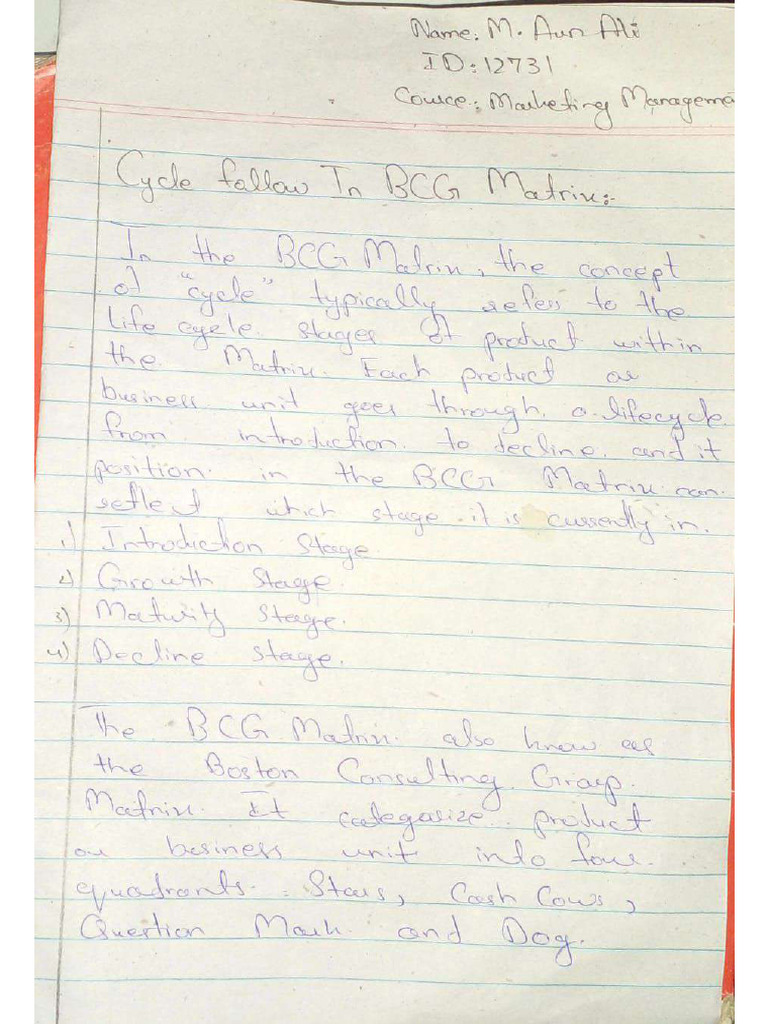 Name: M. Aun Ali
ID: 12731
Cource: Marketing Manageme
Cycle follow In BCG Matrix:-
In the BCG Matrix, the concept
of "cycle" typically refers to the
life cycle stages of product within
the Matrix. Each product or
business unit goes through a lifecycle
from introduction to decline and it
position in the BCG Matrix can
reflect which stage it is currently in.
1) Introduction Stage
2) Growth Stage.
3) Maturity Stage.
4) Decline Stage.
The BCG Matrix also know as
the Boston Consulting Group
Matrix. It categorize product
or business unit into four
quadrants. Stars, Cash Cows,
Question Mark and Dog.